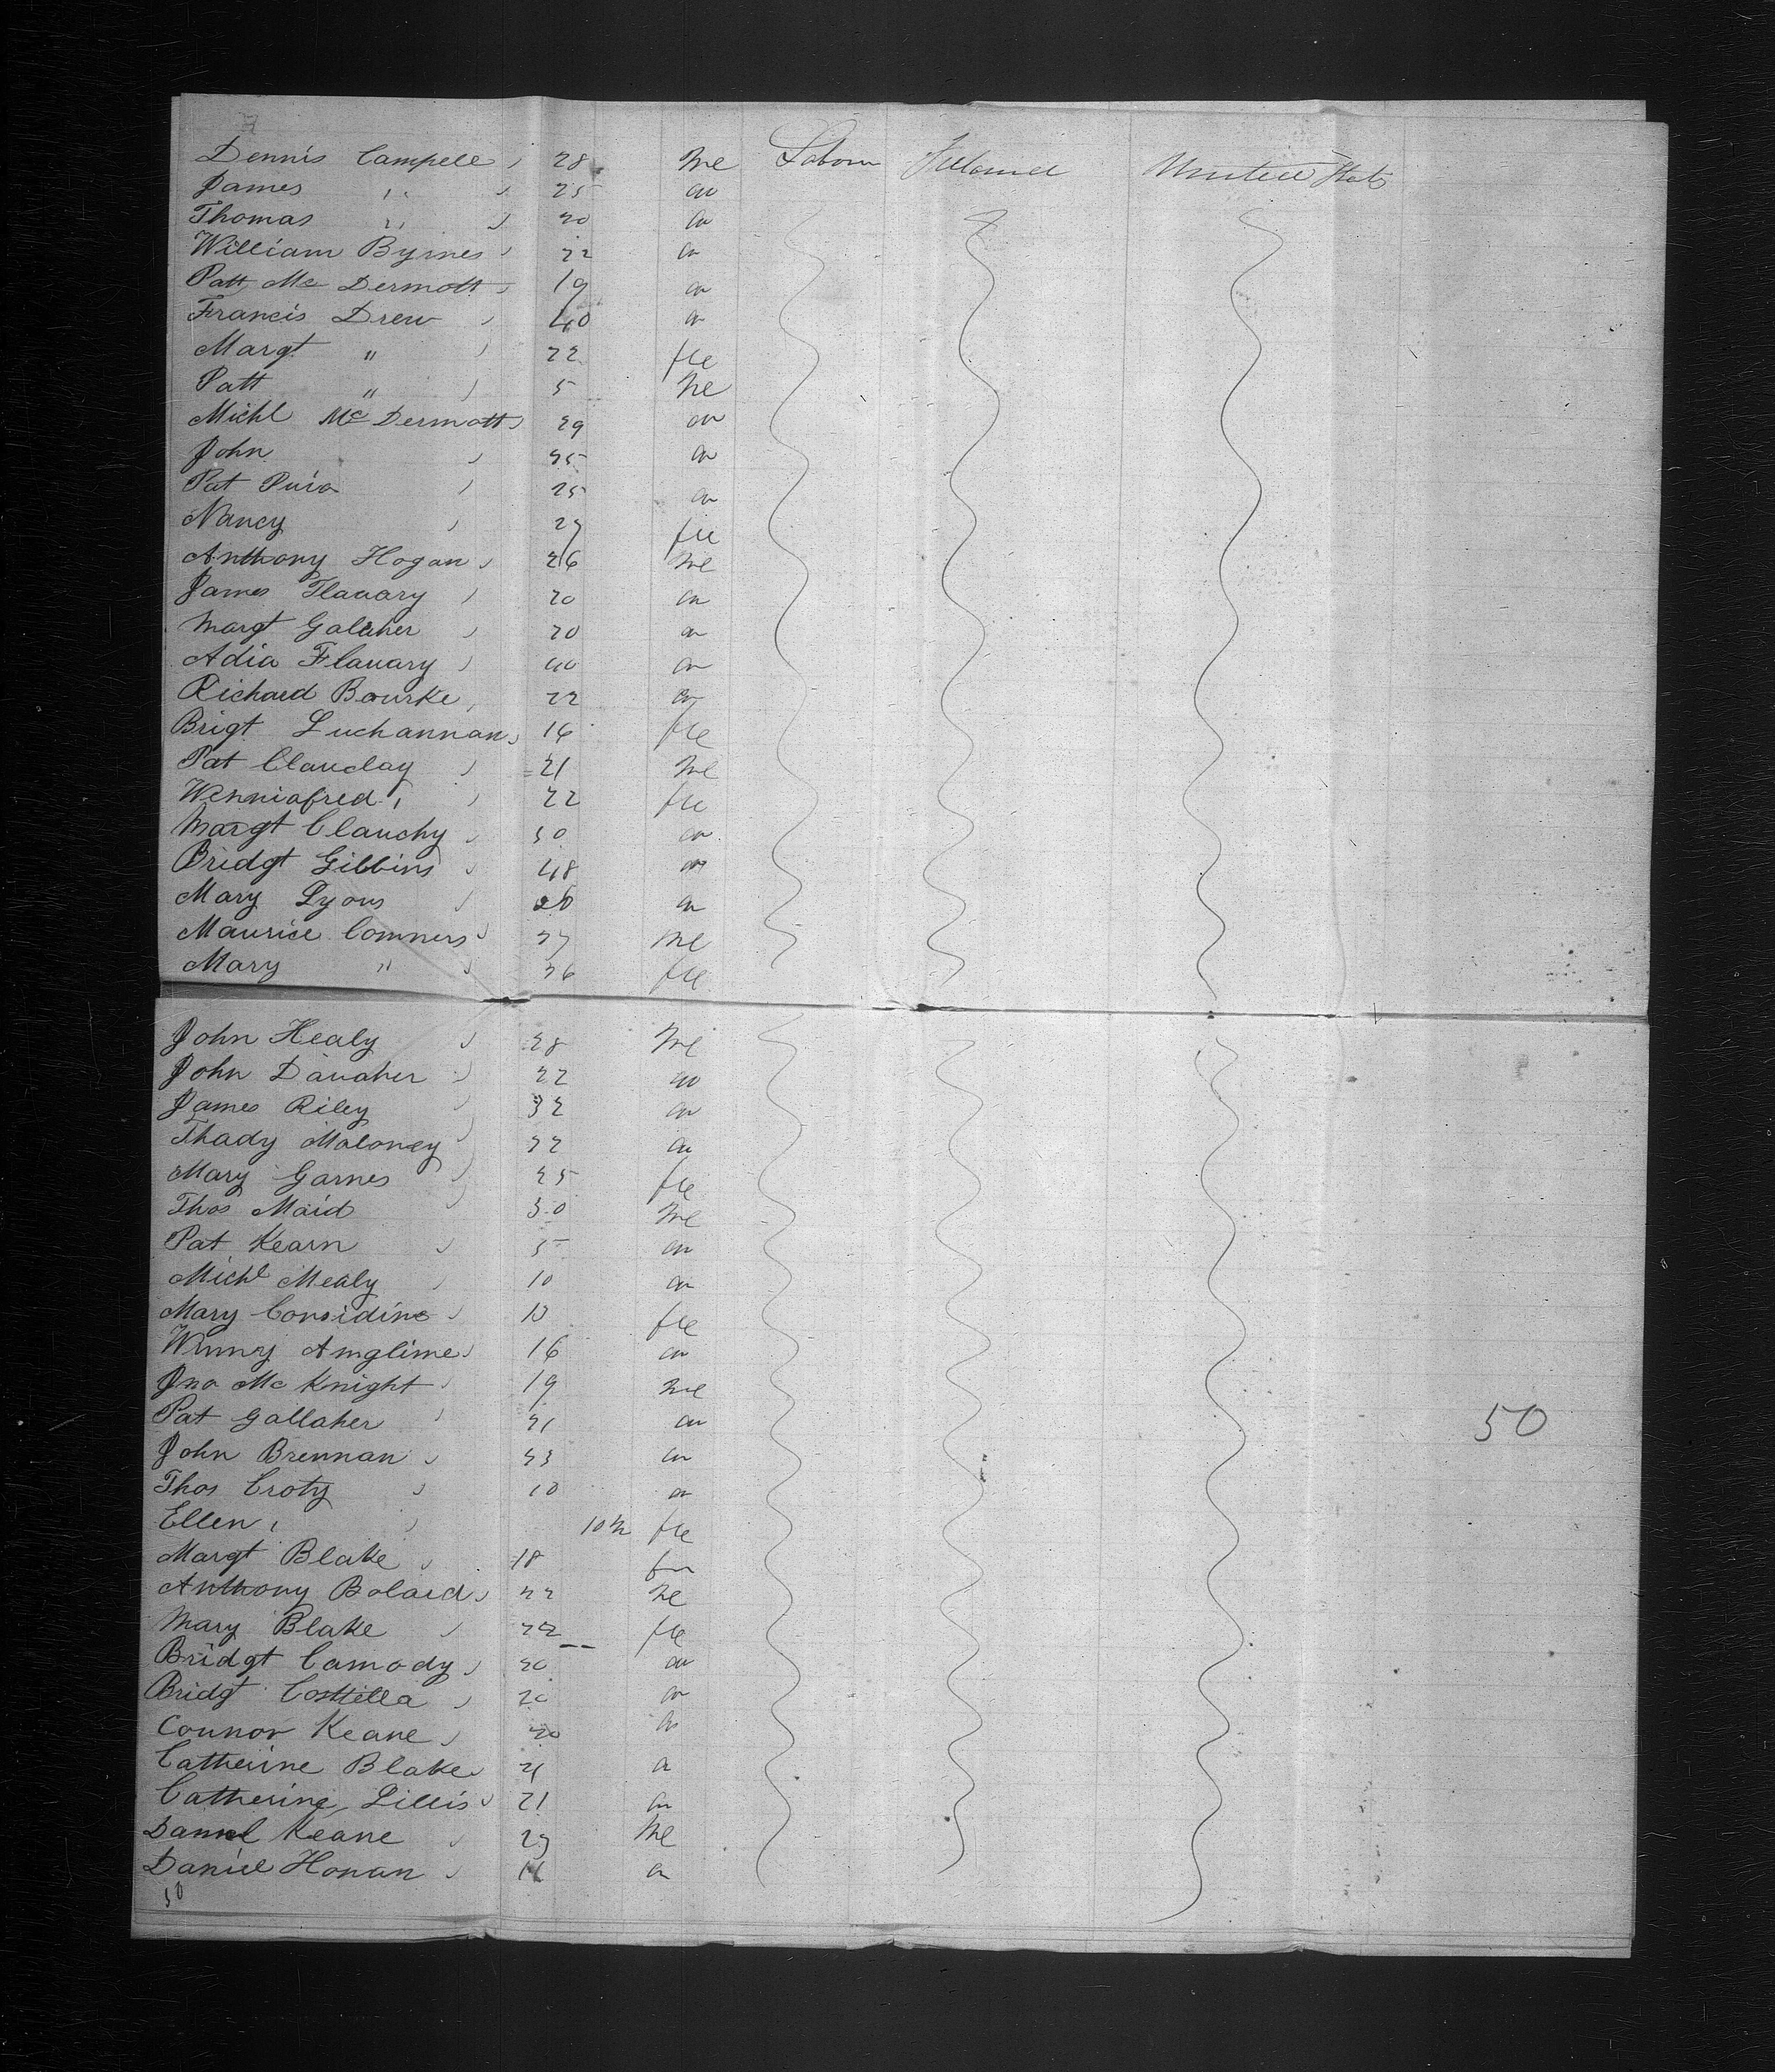 Dennis Campell 28 Me Labour Ireland United Stats
James " 25 do
Thomas " 20 do
William Byrnes 22 do
Patt Mc Dermott 19 do
Francis Drew 40 do
Margt " 22 fle
Patt " 5 Me
Michl Mc Dermott 29 do
John 25 do
Pat 25 do
Nancy 27 fle
Anthony Hogan 26 Me
James Flauary 20 do
Margt Galaher 20 do
Adia Flauary 40 do
Richard Bourke 22 do
Brigt Luchannan 16 fle
Pat Clauday 21 Me
Wenniafred " 22 fle
Margt Clauchy 30 do
Bridgt Gibbins 48 do
Mary Lyons do
Maurice Conners 27 Me
Mary " 26 fle
John Healy 28 Me
John Dauaher 22 do
James Riley 32 do
Thady Maloney 22 do
Mary Garnes 25 fle
Thos Maid 30 Me
Pat Kearn do
Michl Mealy 10 do
Mary Considine fle
Winny Amglime 16 do
Jno Mc Knight 19 Me
Pat Gallaher 21 do
50
John Brennan 23 do
Thos Croty 10 do
Ellen " 10 m fle
Margt Blake 18
Anthony Bolard 22 Me
Mary Blake 22 fle
Bridgt Camody 20 do
Bridgt Costtella 20 do
Connor Keane 20 do
Catherine Blake 21 do
Catherine Lillis 21 do
Daniel Keane 27 Me
Daniel Honan do
50